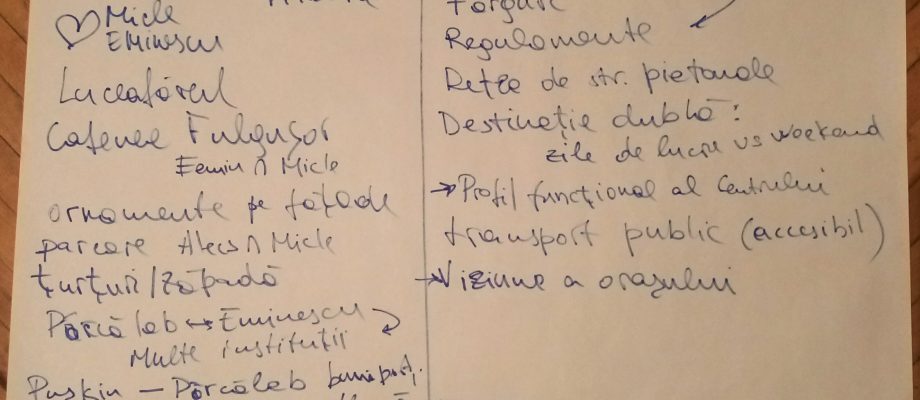 Micle
Eminescu
Luceafărul
Cafenea Fulgușor
Emin ∩ Micle
ornamente pe fațade
parcare Alecs ∩ Micle
țurțuri/zăpadă
Pârcălab ↔ Eminescu
Multe instituții
Pușkin — Pârcălab
Regulamente
Rețea de str. pietonale
Destinație dublă:
zile de lucru vs weekend
→ Profil funcțional al Centrului
transport public (accesibil)
→ Viziune a orașului